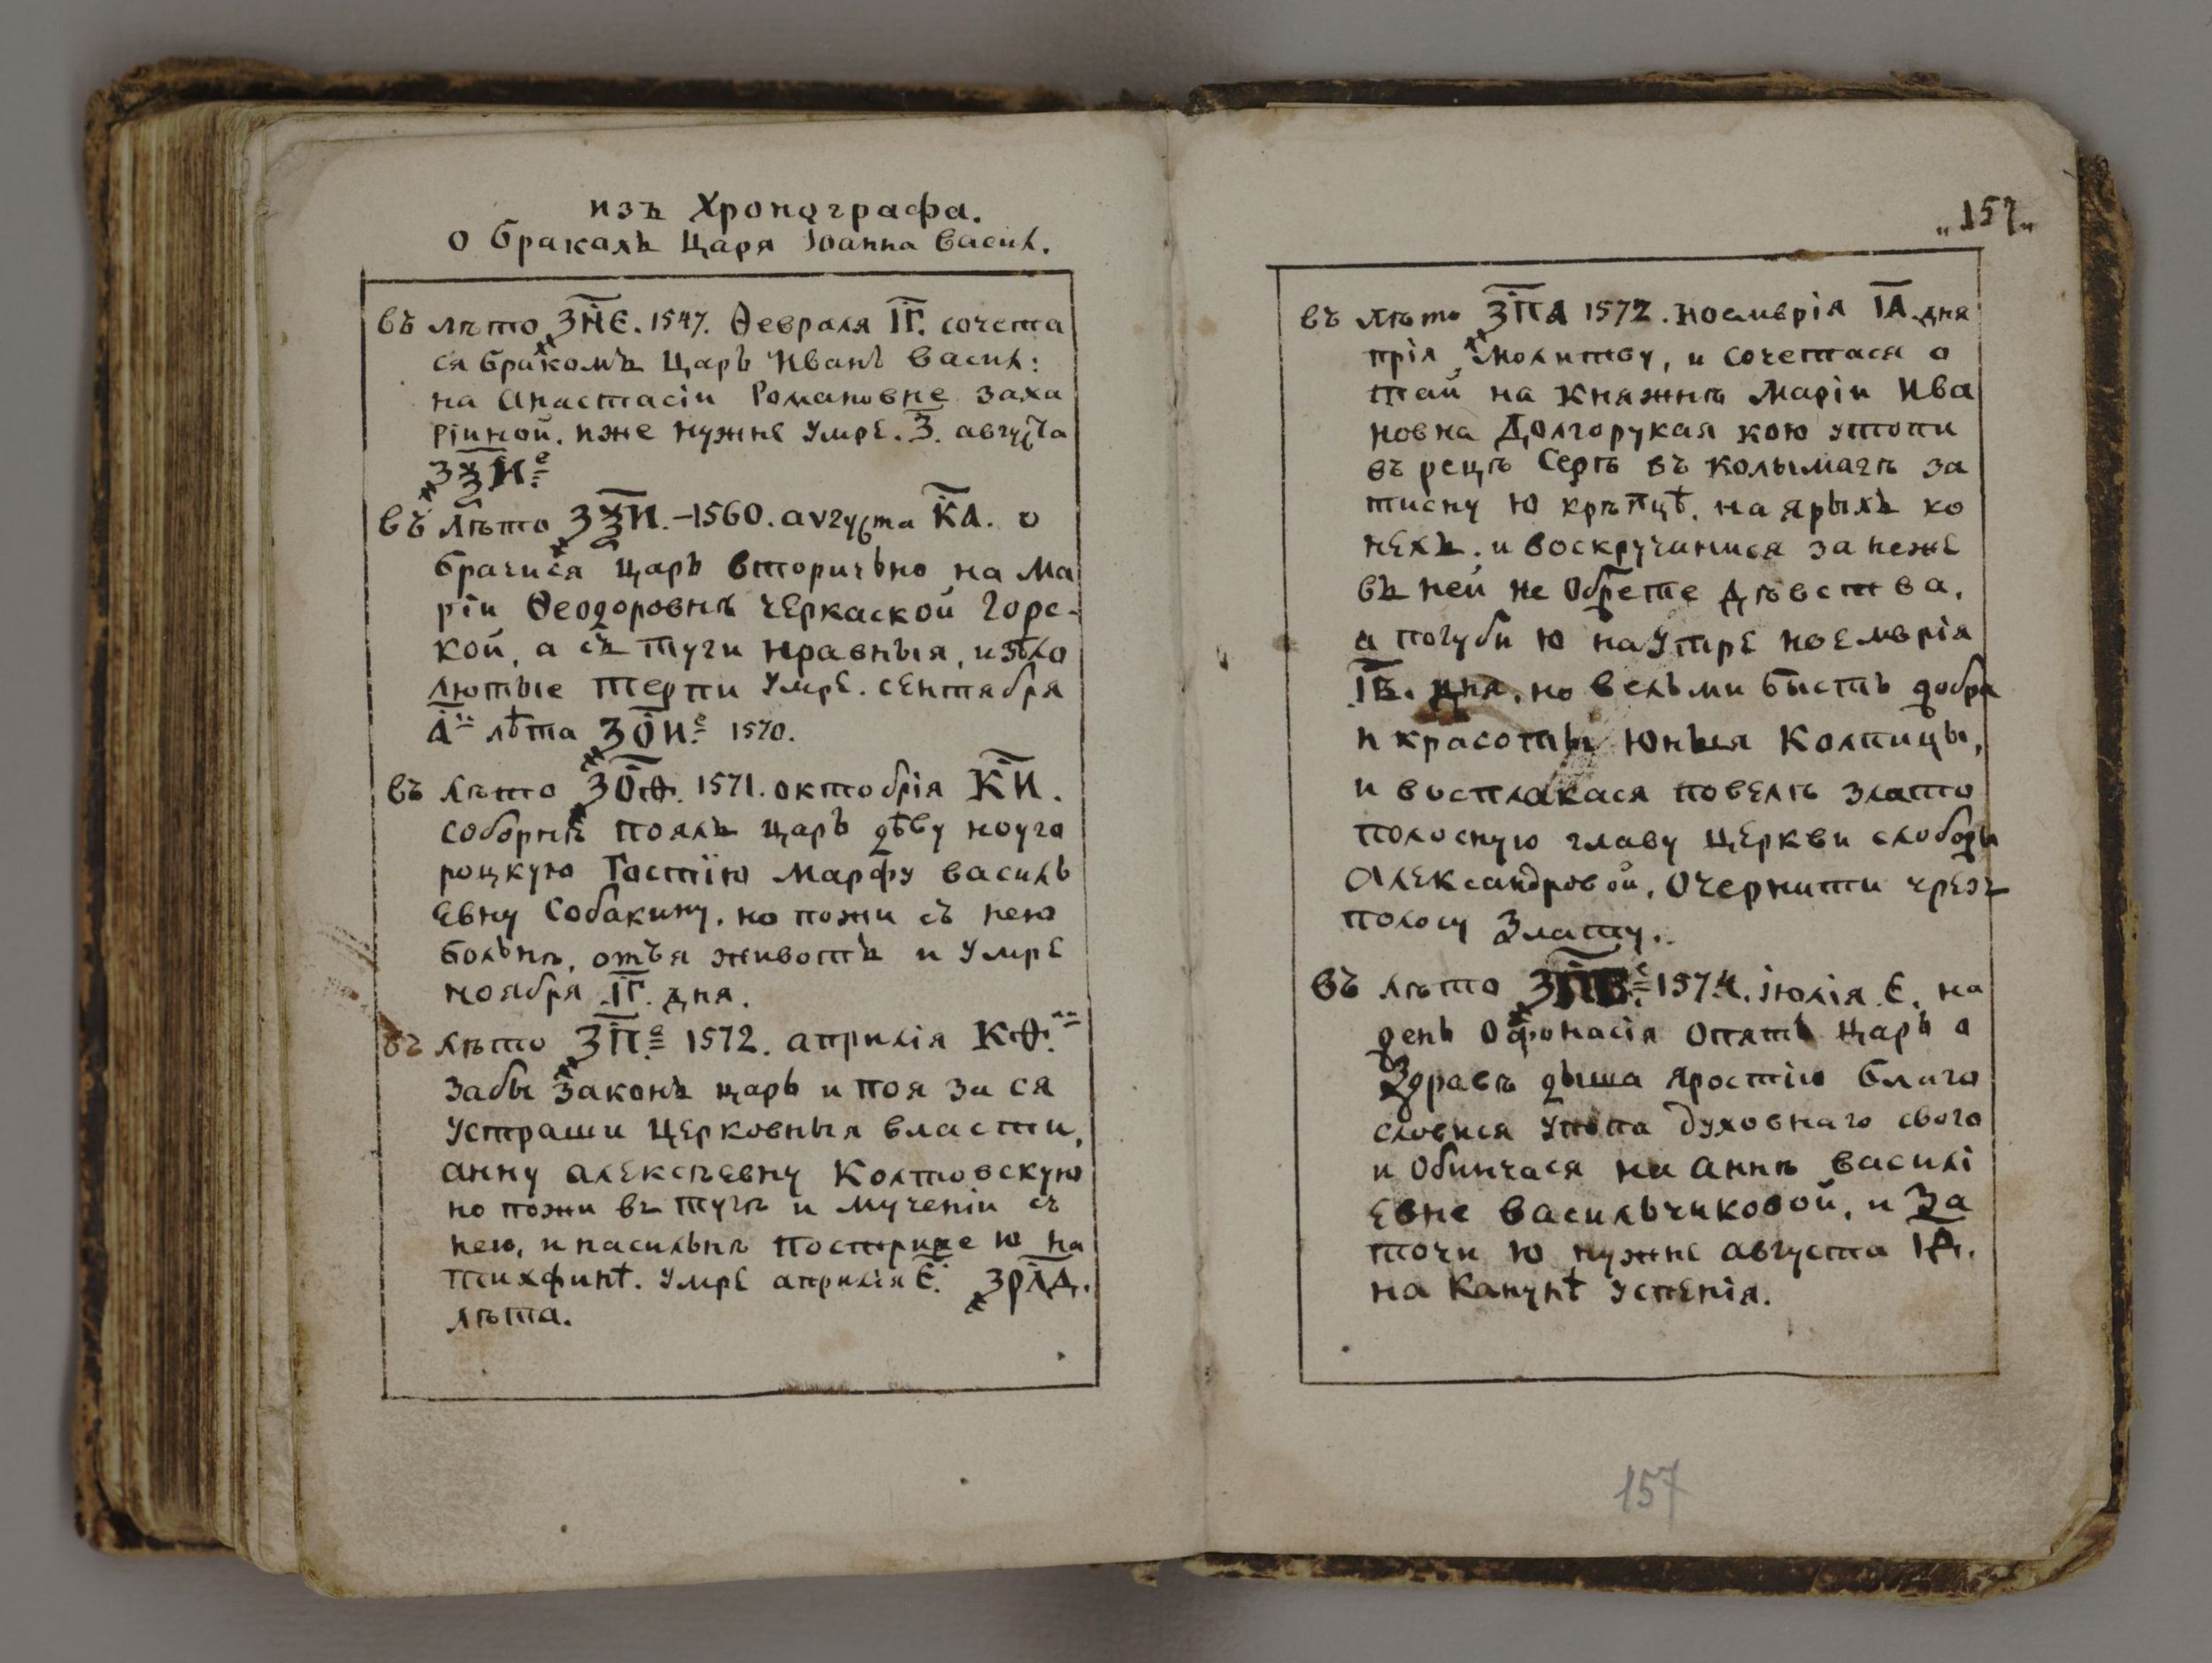 изъ Хронографа.
о бракахъ Царя Іоанна Васил.
въ лѣто ҂ЗНЕ. 1547. Ѳевраля ІГ. сочета
ся бракомъ Царь Иванъ Васил:
на Анастасіи Романовне Заха
ріиной. иже нужне умре. З. августа
҂ЗѮИ.е
въ лѣто ҂ЗѮИ. - 1560. аvгуста КА. о
брачися царь вторичьно на Ма
ріи Ѳеодоровнѣ Черкаской Горс-
кой, а съ туги нравныя, и зѣло
лютые терпи умре. сентября
А лѣта ҂ЗОИ.е 1570.
въ лѣто ҂ЗОѲ. 1571. октобрія КИ.
соборнѣ поялъ царь дѣву ноуго
роцкую Гостїю Марфу Василь
евну Собакину. но пожи съ нею
больнѣ, отъя животъ и умре
ноября ІГ. дня.
въ лѣто ҂ЗП.е 1572. априлія КѲ.
забы законъ царь и поя за ся
устраши церковныя власти,
Анну Алексѣевну Колтовскую
но пожи въ тугѣ и мученіи съ
нею, и насильнѣ постриже ю на
тихфинѣ. умре априлія Е. ҂ЗРЛД.
лѣта.
„157„
въ лѣто ҂ЗПА 1572. ноемврія ІА дня
прія молитву, и сочетася о
тай на Княжнѣ Маріи Ива
новна Долгорукая кою утопи
въ рецѣ Серѣ въ колымагѣ за
тисну ю крѣпцѣ. на ярыхъ ко
нехъ. и воскручинися за неже
въ ней не обрете дѣвства.
а погуби ю наутре ноемврія
ІВ. дня. но вельми бысть добра
и красоты юныя Колпицы,
и восплакася повелѣ злато
полосную главу церкви слободы
Александровой. Очернити чрезъ
полосу злату.
въ лѣто ҂ЗПВ.е 1574. іюлія Е. на
день Офонасія опять царь о
Здравѣ дыша яростію благо
словися у попа духовнаго свого
и обинчася на Аннѣ Василі
евне Васильчиковой, и За
точи ю нужне августа ІД.
на Канунѣ успенія.
157